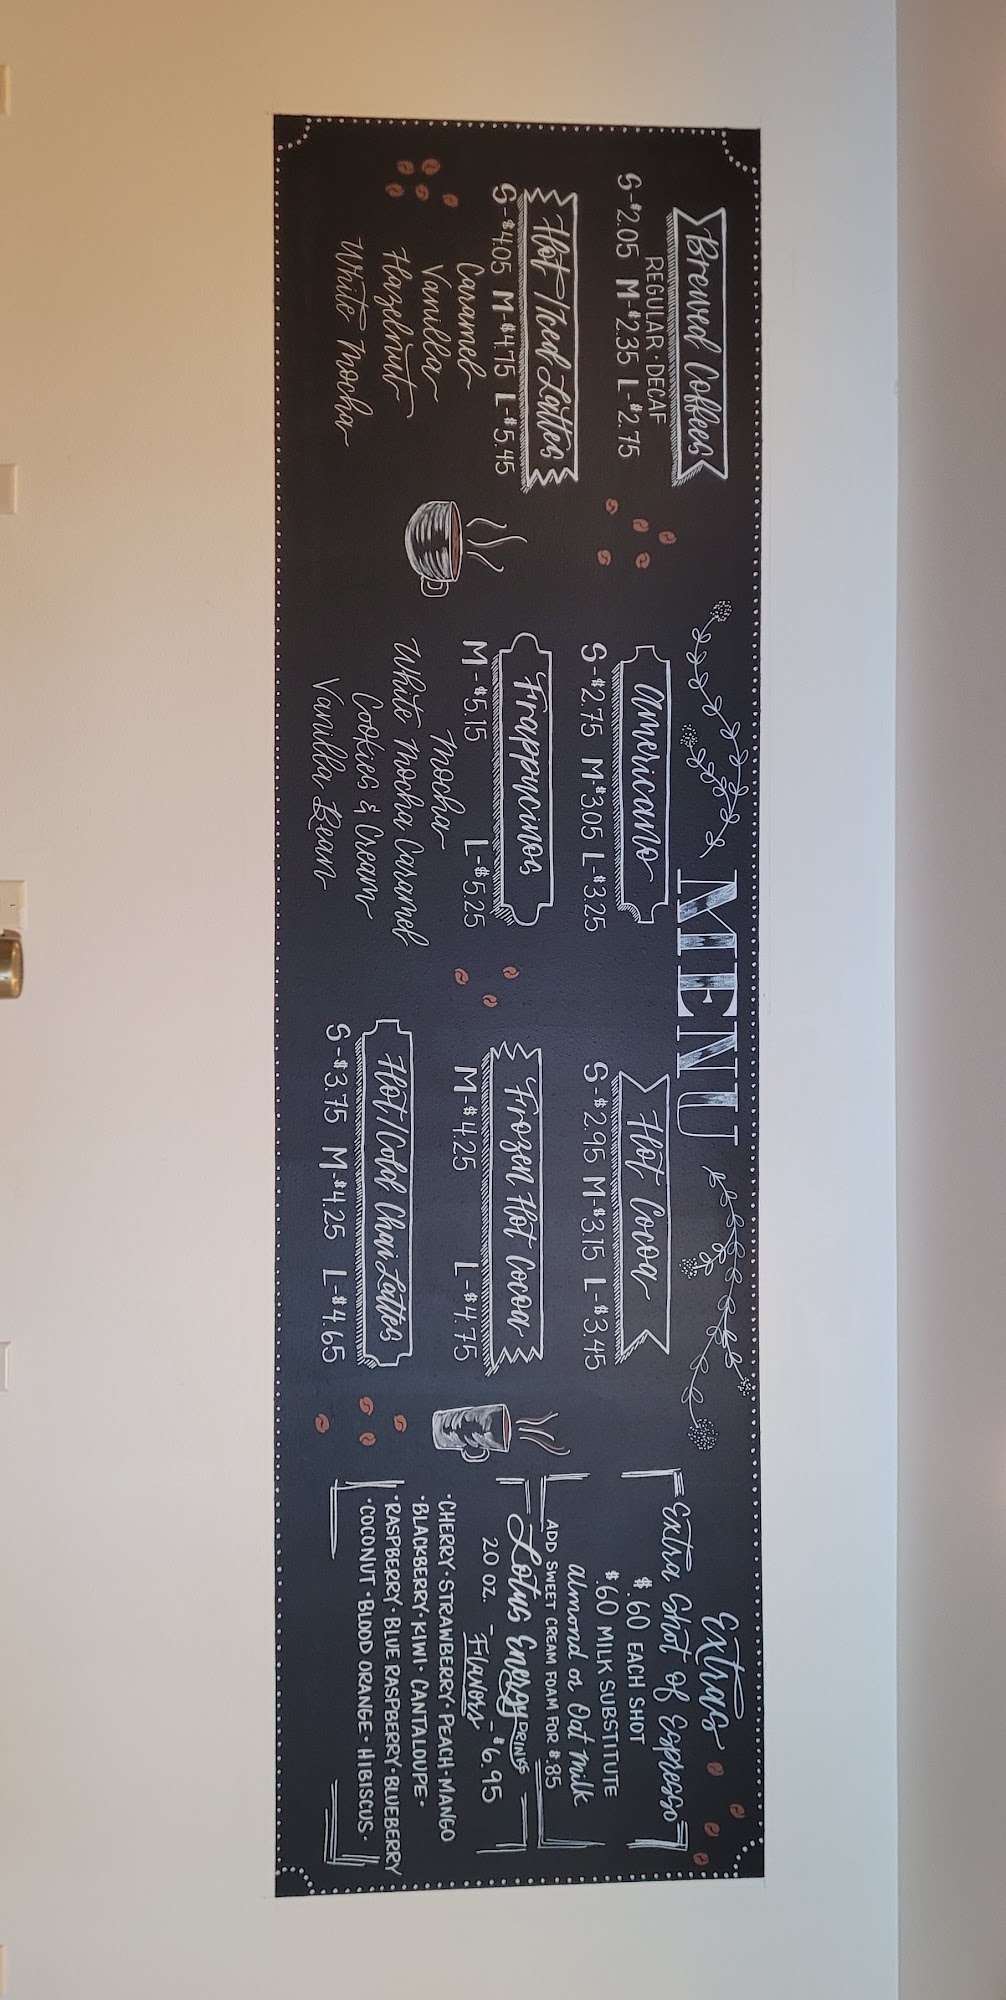 MENU
Brewed Coffees
REGULAR · DECAF
S-$2.05 M-$2.35 L-$2.75
Hot/Iced Lattes
S-$4.05 M-$4.75 L-$5.45
Caramel
Vanilla
Hazelnut
White Mocha
Americano
S-$2.75 M-$3.05 L-$3.25
Frappucinos
M-$5.15 L-$5.25
Mocha
White Mocha Caramel
Cookies & Cream
Vanilla Bean
Hot Cocoa
S-$2.95 M-$3.15 L-$3.45
Frozen Hot Cocoa
M-$4.25 L-$4.75
Hot/Cold Chai Lattes
S-$3.75 M-$4.25 L-$4.65
Extras
Extra Shot of Espresso
$.60 EACH SHOT
$.60 MILK SUBSTITUTE
Almond or Oat Milk
ADD SWEET CREAM FOAM FOR $.85
Lotus Energy DRINKS
20 oz. - Flavors - $6.95
·CHERRY·STRAWBERRY·PEACH·MANGO
·BLACKBERRY·KIWI·CANTALOUPE·
·RASPBERRY·BLUE RASPBERRY·BLUEBERRY
·COCONUT·BLOOD ORANGE·HIBISCUS·